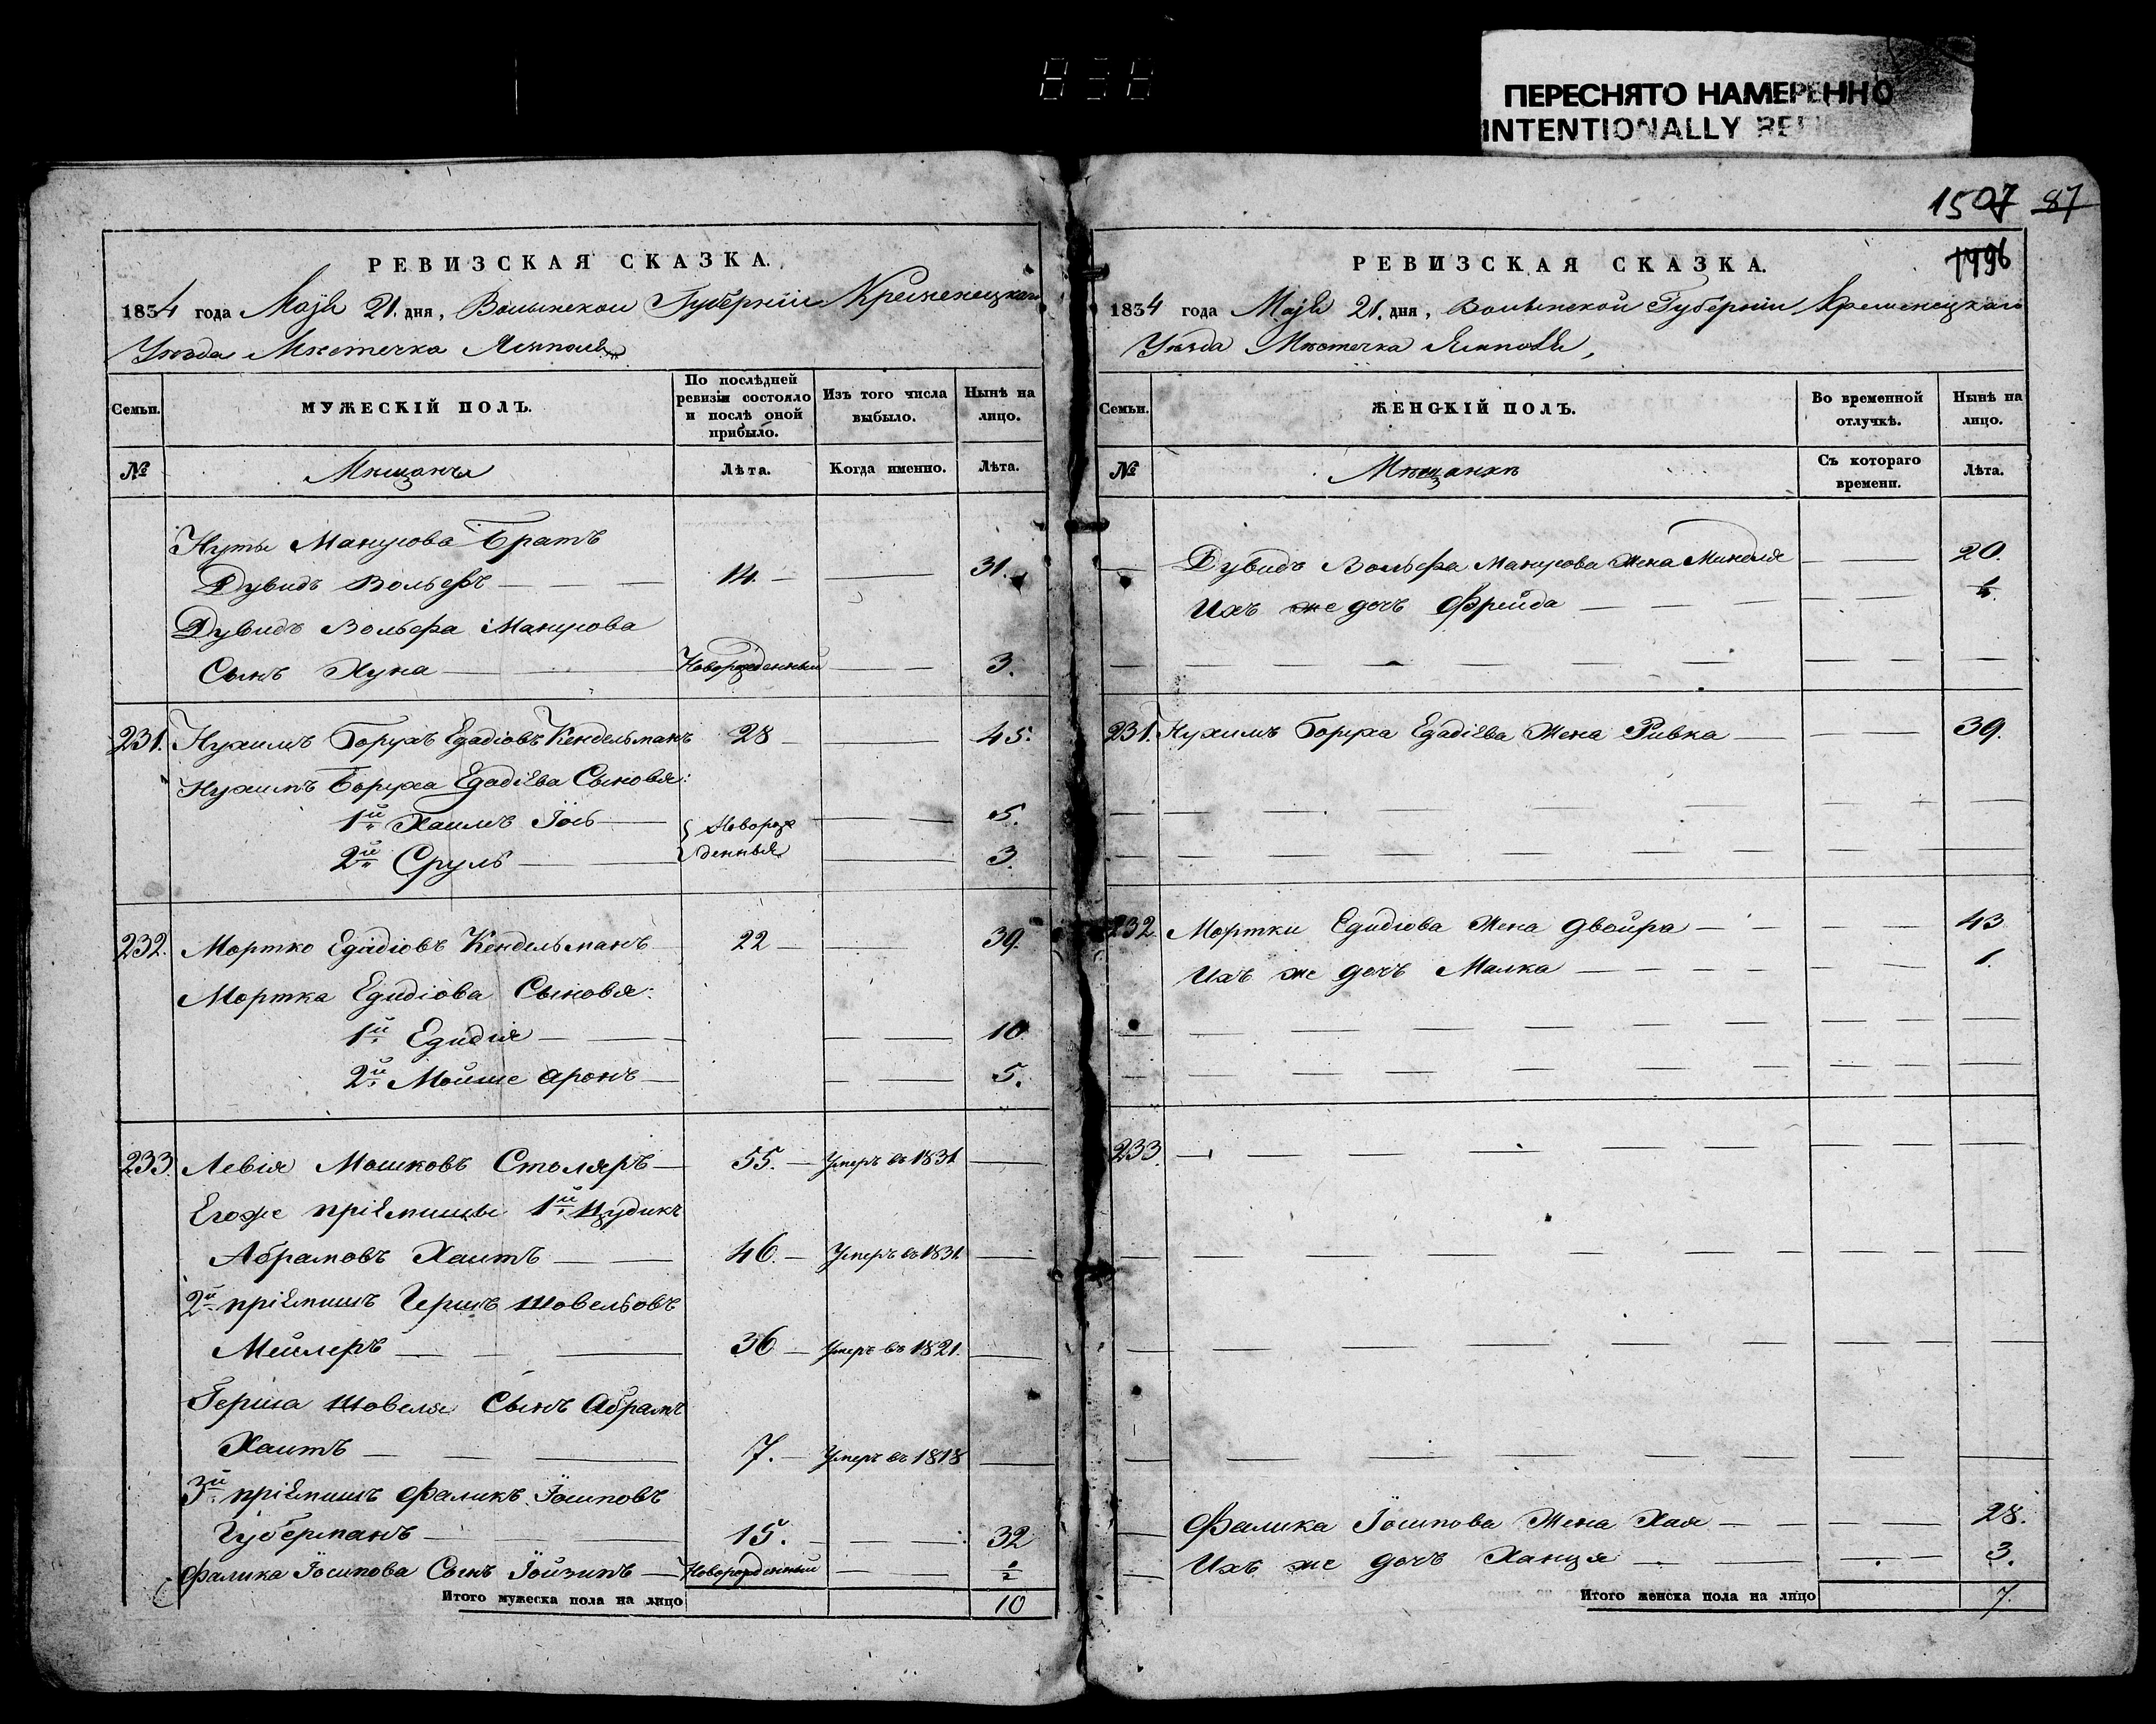 ПЕРЕСНЯТО НАМЕРЕННО
INTENTIONALLY
1507 87
1496
РЕВИЗСКАЯ СКАЗКА.
1834 года Маія 21. дня, Волынской Губерніи Кременецкаго
Уѣзда Мѣстечка Ямполя
Семьи.
МУЖЕСКІЙ ПОЛЪ.
По послѣдней ревизіи состояло и послѣ оной прибыло.
Изъ того числа выбыло.
Нынѣ на лицо.
№
Мѣщанъ
Лѣта.
Когда именно.
Лѣта.
Нуты Манусова Братъ
Дувидъ Вольфъ — 14. — 31.
Дувидъ Вольфа Манусова
Сынъ Хуна — Новорожденный — 3.
231. Нухимъ Борухъ Егадіовъ Кендельманъ 28 — 45.
Нухимъ Боруха Егадіева Сыновья:
1й Хаимъ Іось — Новорож — 5.
2й Сруль — денныя — 3.
232. Мортко Егадіовъ Кендельманъ 22 — 39.
Мортка Егидіова Сыновья:
1й Егидія — 10
2й Мойше Аронъ — 5.
233. Левія Мошковъ Столяръ — 55. — Умеръ въ 1831 —
Егоже пріемыши 1й Цудикъ
Абрамовъ Хаитъ — 46. — Умеръ въ 1831 —
2й пріемышъ Гершъ Шовельовъ
Мейлеръ — 36 — Умеръ въ 1821. —
Герша Шовеля Сынъ Абрамъ
Хаитъ — 7. — Умеръ въ 1818 —
3й пріемышъ Фаликъ Іосиповъ
Губерманъ — 15. — 32
Фалика Іосипова Сынъ Іойзипъ — Новорожденный — 1/2
Итого мужеска пола на лицо 10
РЕВИЗСКАЯ СКАЗКА.
1834 года Маія 21. дня, Волынской Губерніи Кременецкаго
Уѣзда Мѣстечка Ямполя,
Семьи.
ЖЕНСКІЙ ПОЛЪ.
Во временной отлучкѣ.
Нынѣ на лицо.
№
Мѣщанкѣ
Съ котораго времени.
Лѣта.
Дувидъ Вольфа Манусова Жена Минделя — 20.
Ихъ же дочь Фрейда —
231. Нухимъ Боруха Егадіева Жена Ривка — 39.
232 Мортки Егидіова Жена Двойра — 43
Ихъ же дочь Малка — 1.
233. —
Фалика Іосипова Жена Хая — 28.
Ихъ же дочь Ханця — 3.
Итого женска пола на лицо 7.